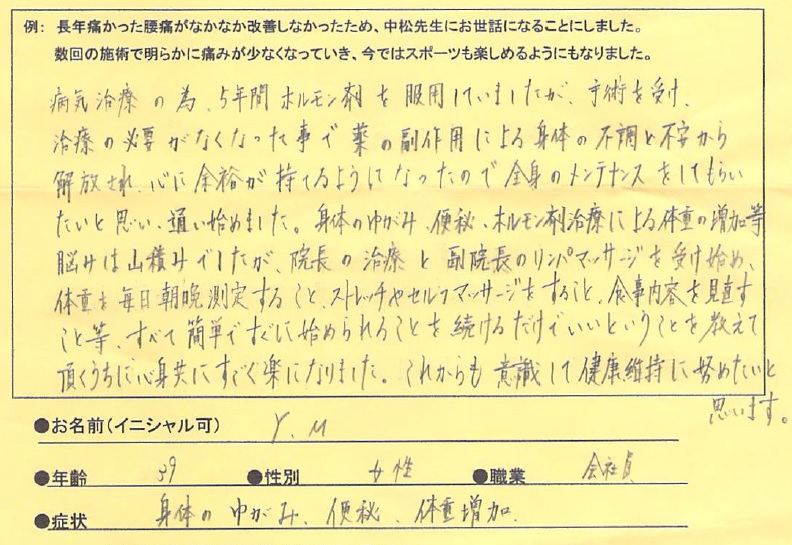 例: 長年痛かった腰痛がなかなか改善しなかったため、中松先生にお世話になることにしました。
数回の施術で明らかに痛みが少なくなっていき、今ではスポーツも楽しめるようにもなりました。
病気治療の為、5年間ホルモン剤を服用していましたが、手術を受け、
治療の必要がなくなった事で薬の副作用による身体の不調と不安から
解放され、心に余裕が持てるようになったので全身のメンテナンスをしてもらい
たいと思い、通い始めました。身体のゆがみ、便秘、ホルモン剤治療による体重の増加等
脳みは山積みでしたが、院長の治療と副院長のリンパマッサージを受け始め、
体重を毎日朝晩測定すること、ストレッチやセルフマッサージをすること、食事内容を見直す
こと等、すべて簡単ですぐに始められることを続けるだけでいいということを教えて
頂くうちに心身共にすごく楽になりました。これからも意識して健康維持に努めたいと
思います。
●お名前(イニシャル可) Y.M
●年齢 39 ●性別 女性 ●職業 会社員
●症状 身体のゆがみ、便秘、体重増加.